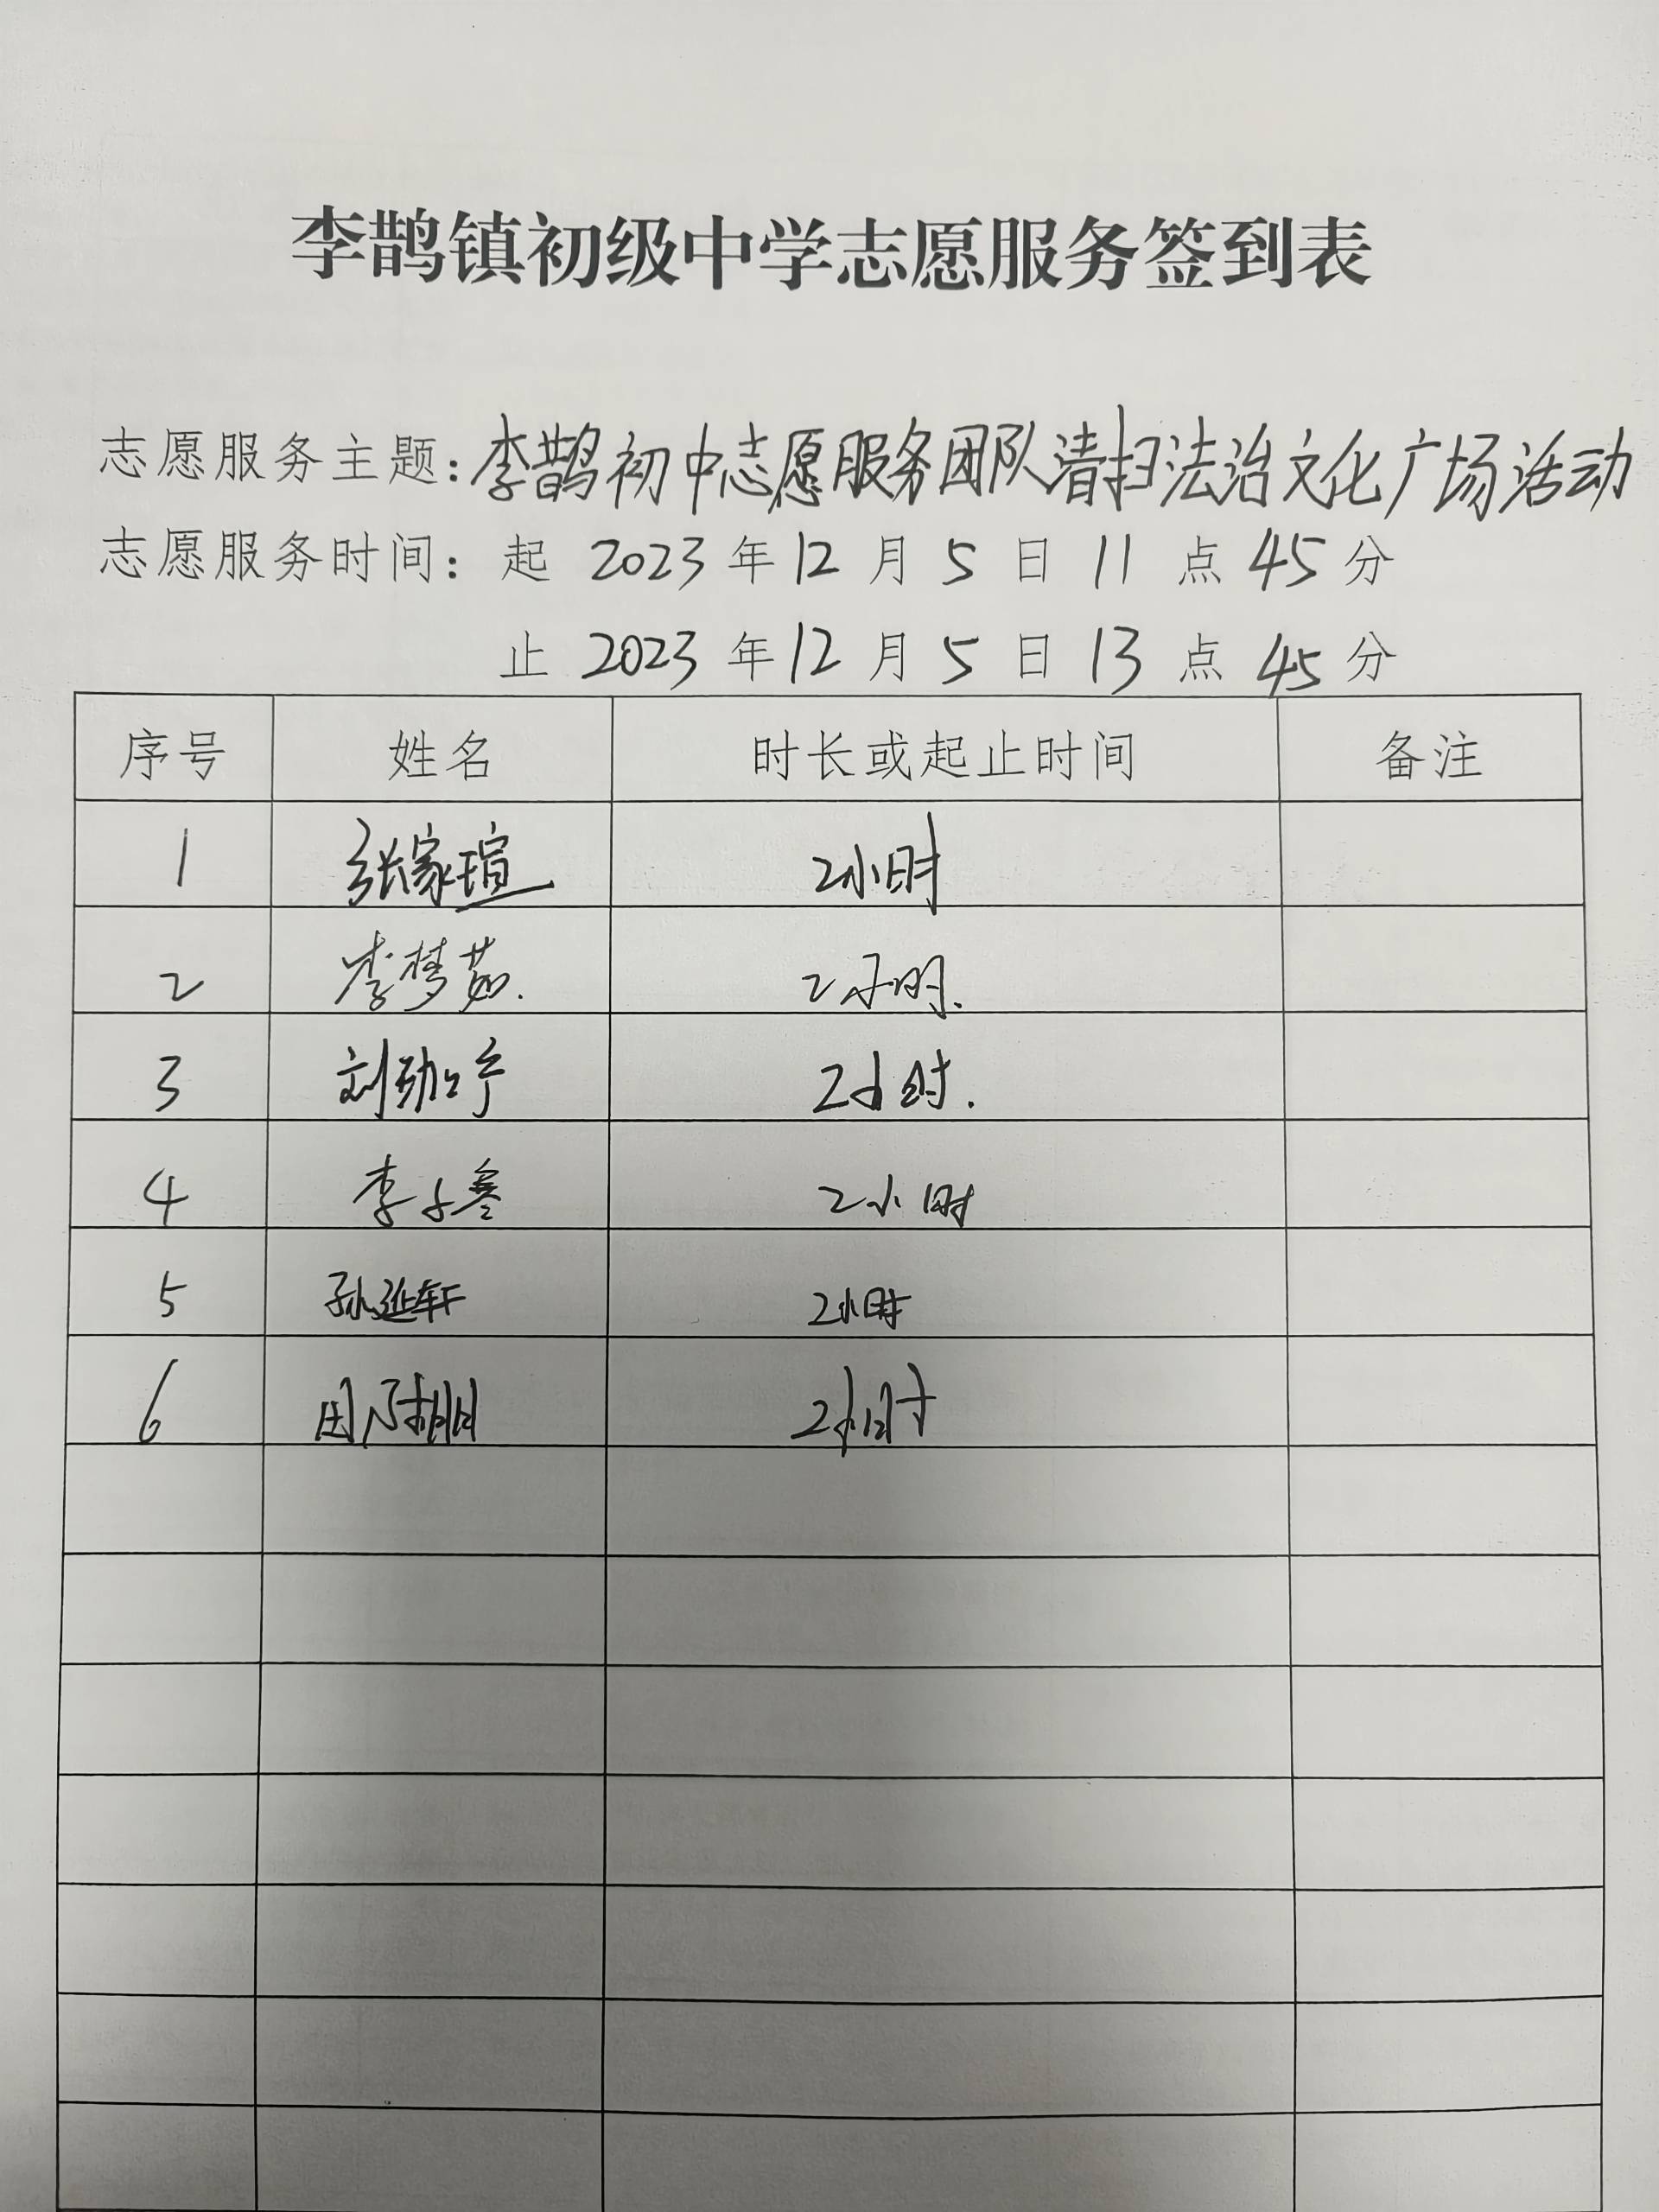 李鹊镇初级中学志愿服务签到表
志愿服务主题：李鹊初中志愿服务团队清扫法治文化广场活动
志愿服务时间：起 2023 年 12 月 5 日 11 点 45 分
止 2023 年 12 月 5 日 13 点 45 分
序号 姓名 时长或起止时间 备注
1 张家瑄 2小时
2 李梦茹. 2小时.
3 刘 2小时.
4 李子 2小时
5 孙延轩 2小时
6 2小时